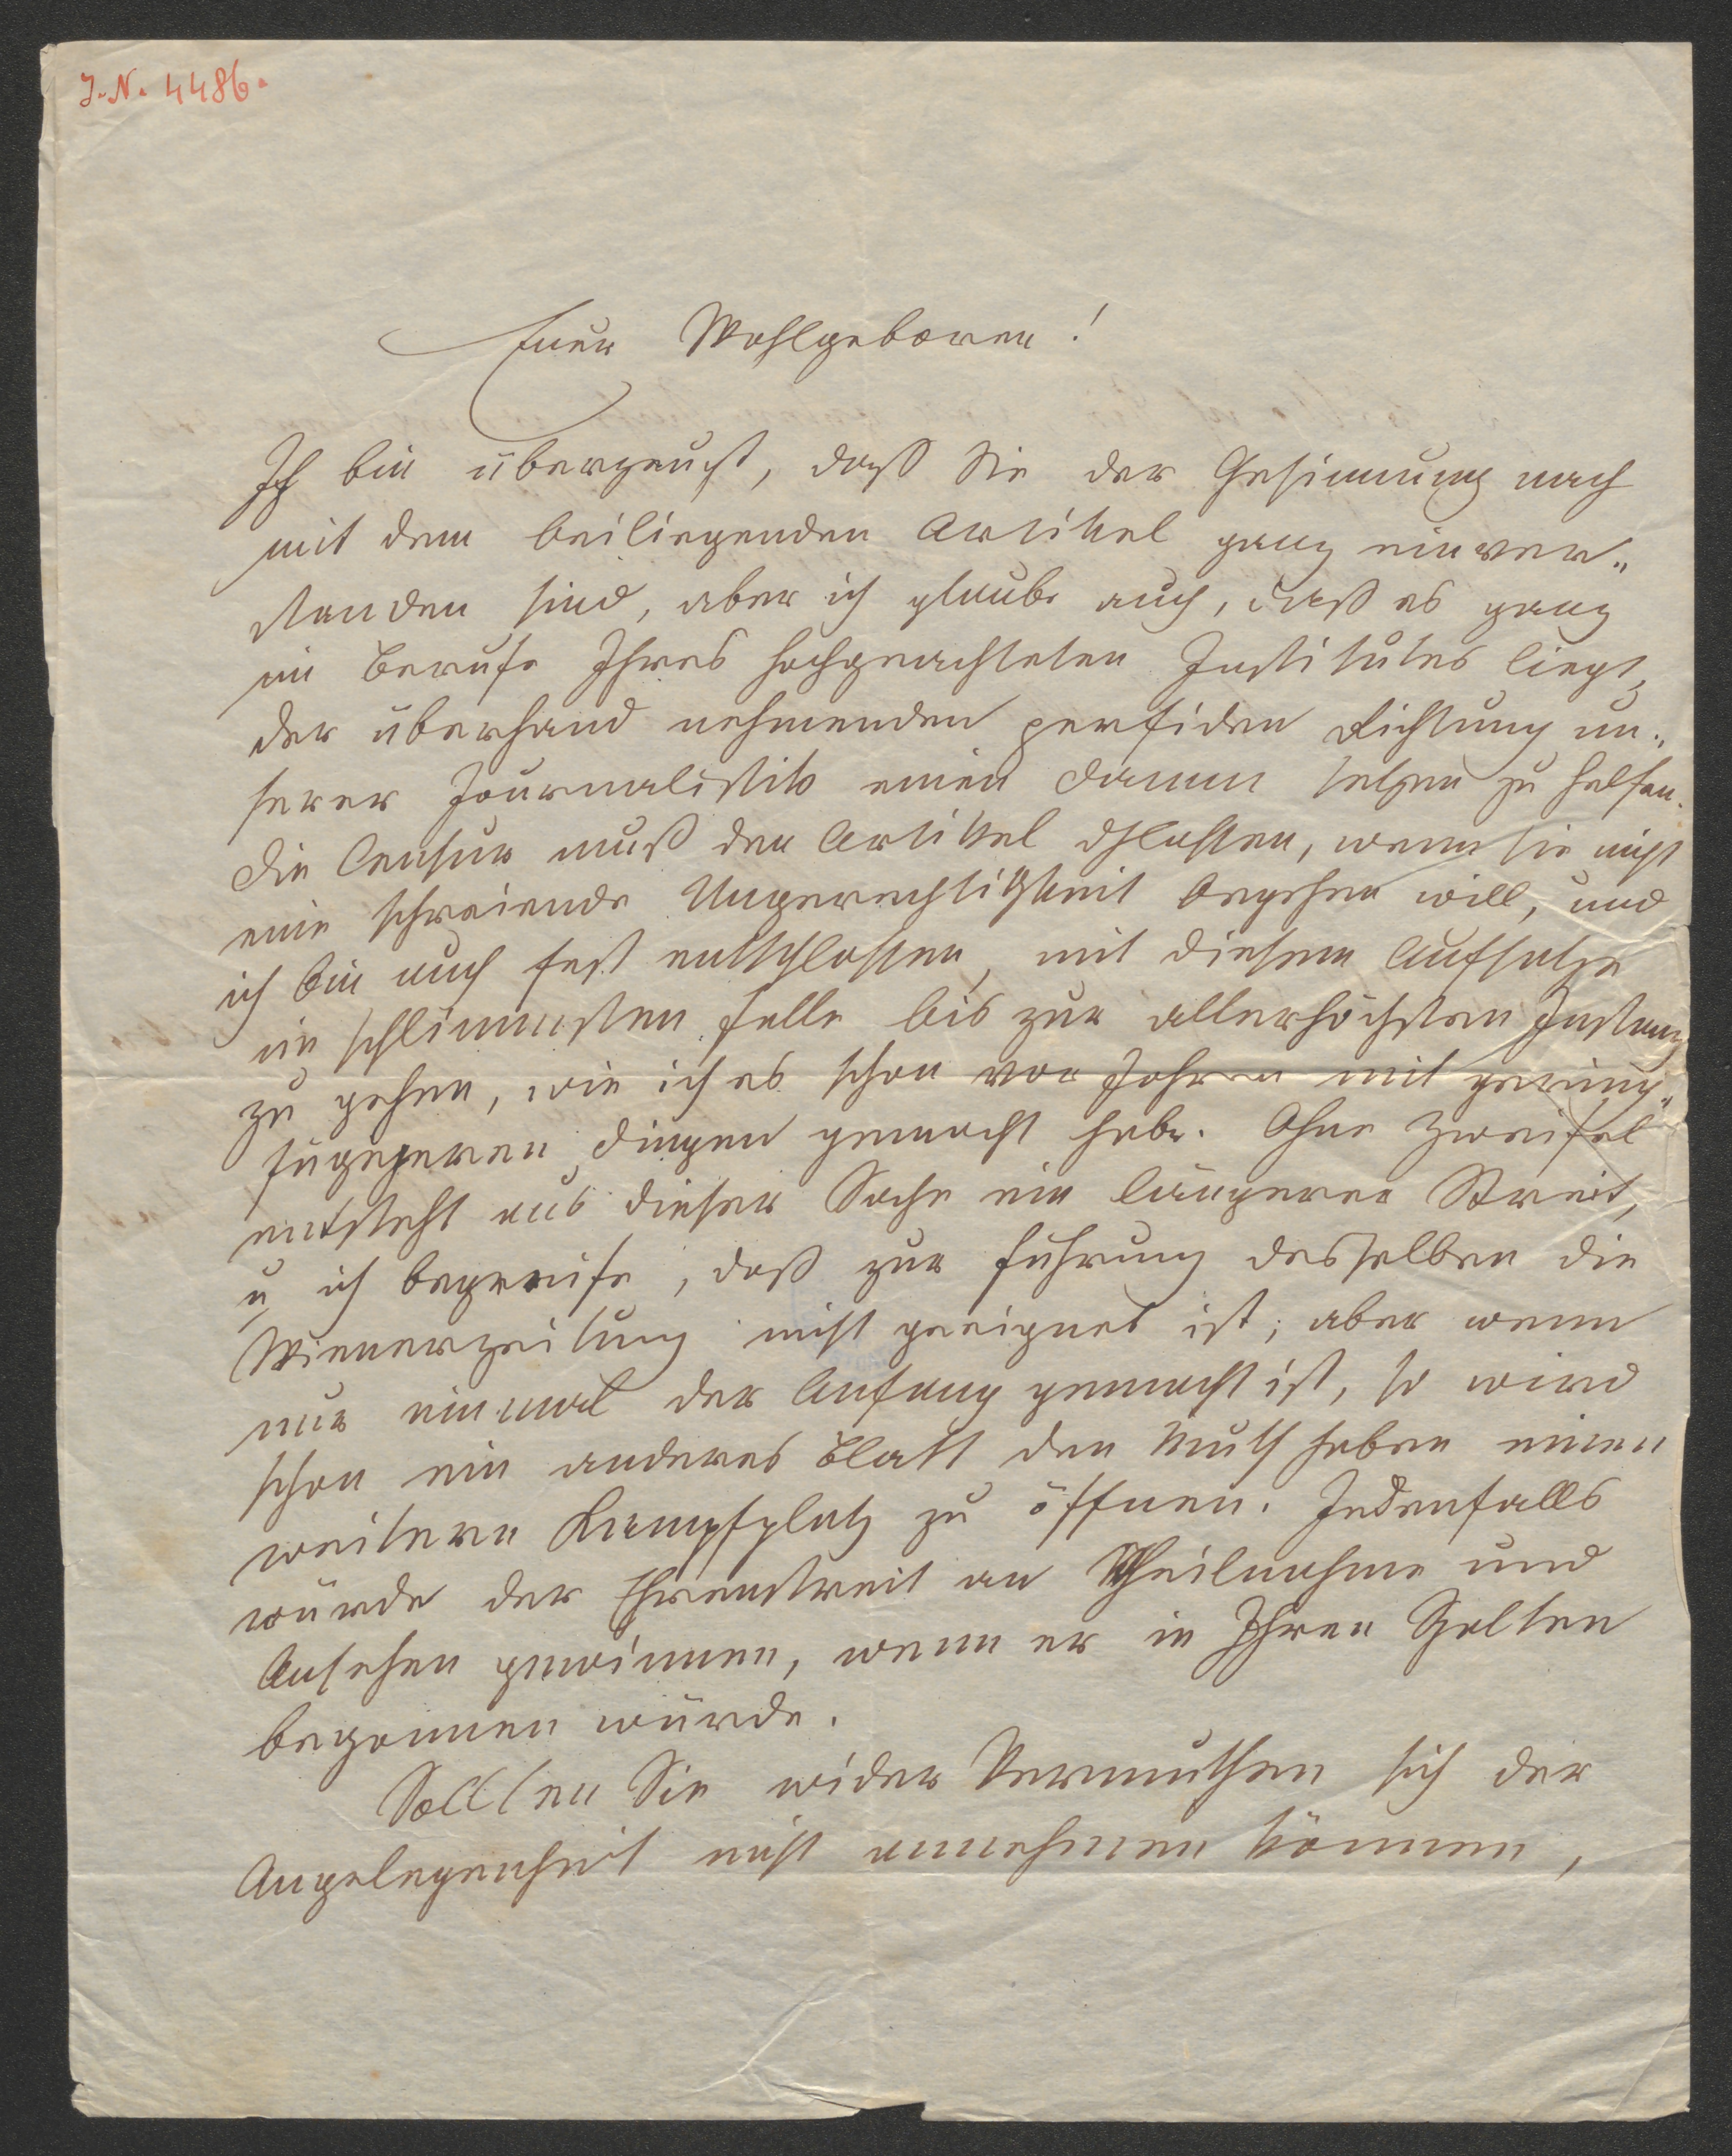 J. N. 4486.
Euer Wohlgeboren!
Ich bin überzeugt, daß Sie der Gesinnung nach
mit dem beiliegenden Artikel ganz einver„
standen sind, aber ich glaube auch, daß es ganz
im Berufe Ihres hochgeachteten Institutes liegt,
der überhand nehmenden perfiden Richtung un„
serer Journalistik einen Damm setzen zu helfen.
Die Censur muß den Artikel lassen, wenn sie nicht
eine schreiende Ungerechtigkeit begehen will, und
ich bin auch fest entschlossen, mit diesem Aufsatze
im schlimmsten Falle bis zur allerhöchsten Instanz
zu gehen, wie ich es schon vor Jahren mit gering„
fügigeren Dingen gemacht habe. Ohne Zweifel
entsteht aus dieser Sache ein längerer Streit,
u ich begreife, daß zur Führung desselben die
Wienerzeitung nicht geeignet ist; aber wenn
nur einmal der Anfang gemacht ist, so wird
schon ein anderes Blatt den Muth haben einen
weitern Kampfplatz zu öffnen. Jedenfalls
würde der Ehrenstreit an Theilnahme und
Ansehen gewinnen, wenn er in Ihren Spalten
begonnen würde.
Sollten Sie wider Vermuthen sich der
Angelegenheit nicht annehmen können,